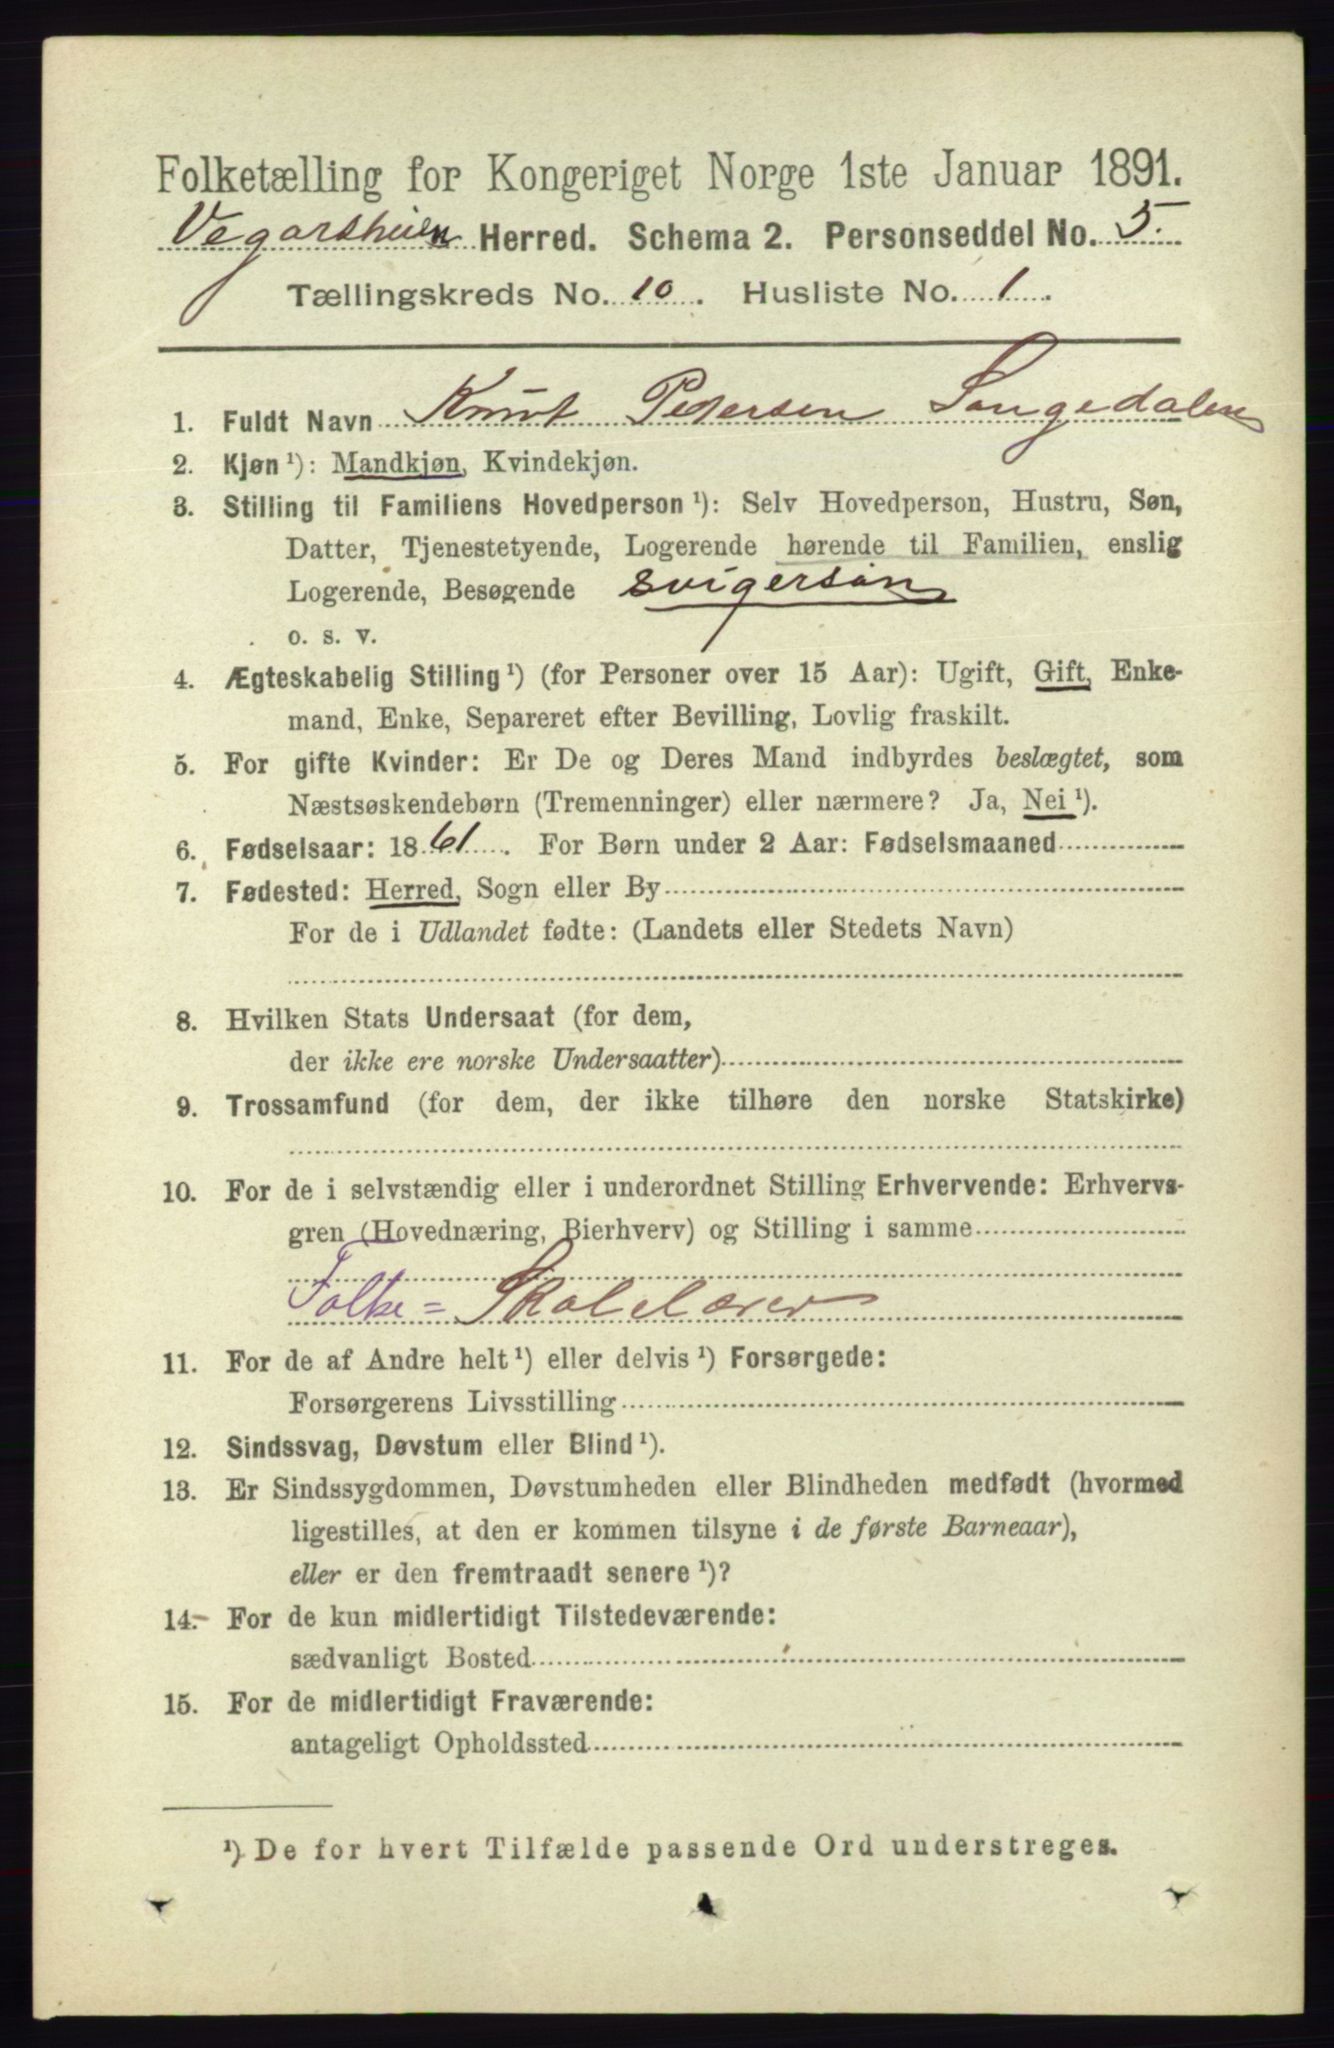 Folketælling for Kongeriget Norge 1ste Januar 1891.
Vegarsheien Herred. Schema 2. Personseddel No. 5.
Tællingskreds No. 10. Husliste No. 1.
1. Fuldt Navn Knut Pedersen Songedalen
2. Kjøn ¹): Mandkjøn, Kvindekjøn.
3. Stilling til Familiens Hovedperson ¹): Selv Hovedperson, Hustru, Søn,
Datter, Tjenestetyende, Logerende hørende til Familien, enslig
Logerende, Besøgende svigersøn
o. s. v.
4. Ægteskabelig Stilling ¹) (for Personer over 15 Aar): Ugift, Gift, Enke-
mand, Enke, Separeret efter Bevilling, Lovlig fraskilt.
5. For gifte Kvinder: Er De og Deres Mand indbyrdes beslægtet, som
Næstsøskendebørn (Tremenninger) eller nærmere? Ja, Nei ¹).
6. Fødselsaar: 1861. For Børn under 2 Aar: Fødselsmaaned
7. Fødested: Herred, Sogn eller By
For de i Udlandet fødte: (Landets eller Stedets Navn)
8. Hvilken Stats Undersaat (for dem,
der ikke ere norske Undersaatter)
9. Trossamfund (for dem, der ikke tilhøre den norske Statskirke)
10. For de i selvstændig eller i underordnet Stilling Erhvervende: Erhvervs-
gren (Hovednæring, Bierhverv) og Stilling i samme
Folke= Skolelærer
11. For de af Andre helt ¹) eller delvis ¹) Forsørgede:
Forsørgerens Livsstilling
12. Sindssvag, Døvstum eller Blind ¹).
13. Er Sindssygdommen, Døvstumheden eller Blindheden medfødt (hvormed
ligestilles, at den er kommen tilsyne i de første Barneaar),
eller er den fremtraadt senere ¹)?
14. For de kun midlertidigt Tilstedeværende:
sædvanligt Bosted
15. For de midlertidigt Fraværende:
antageligt Opholdssted
¹) De for hvert Tilfælde passende Ord understreges.